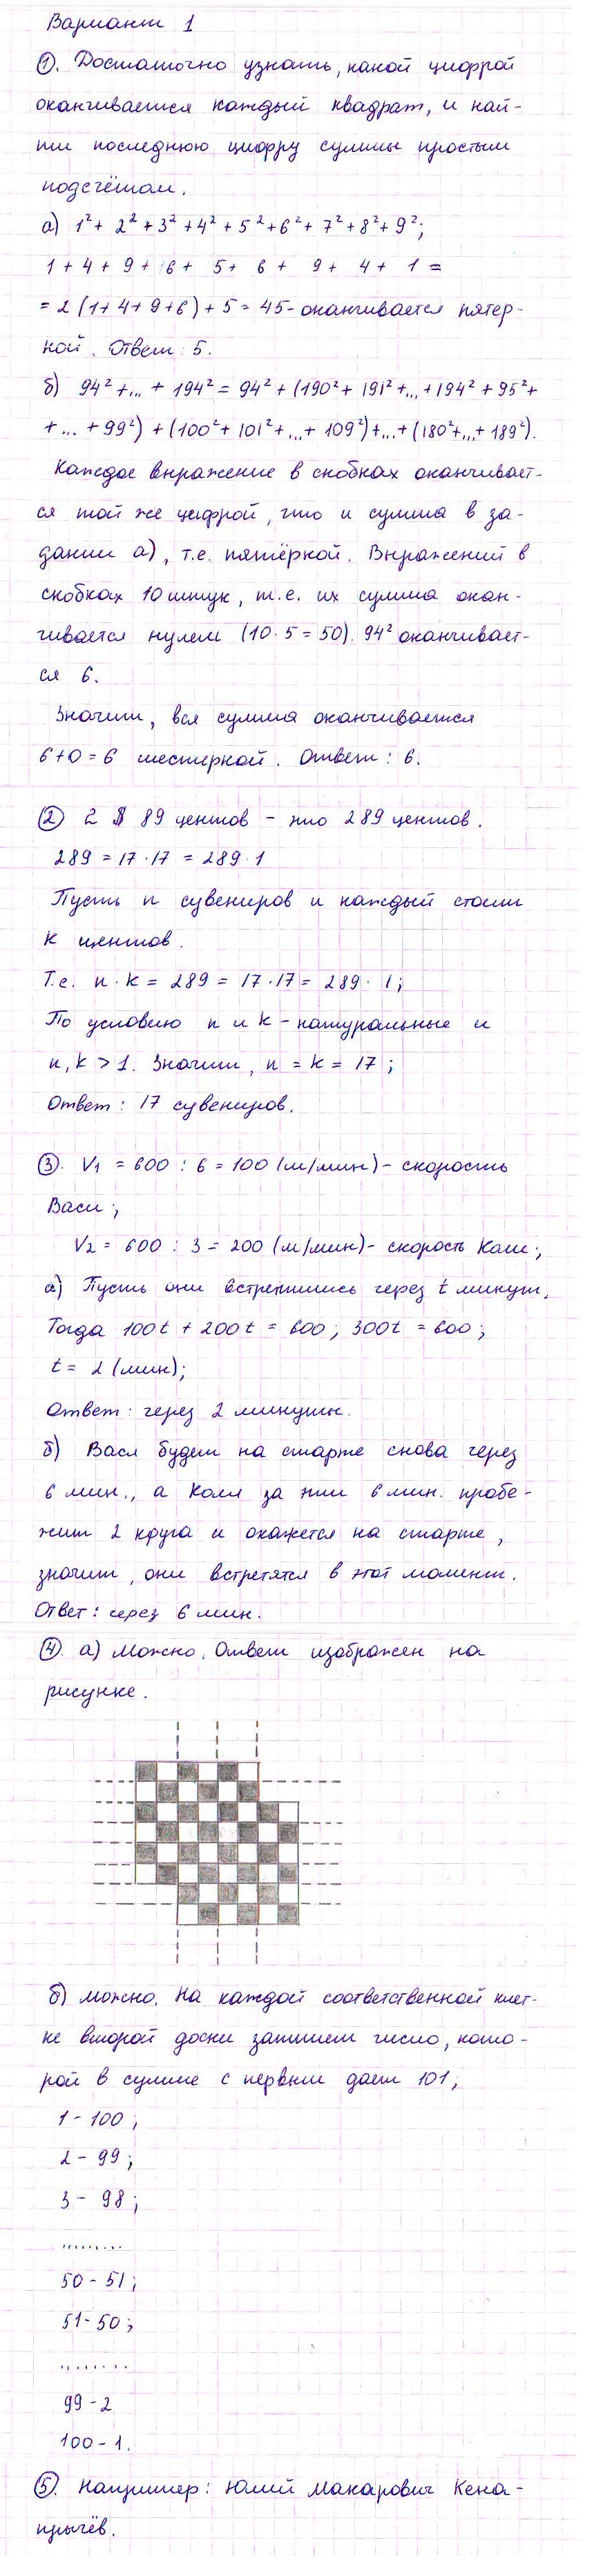 Вариант 1
①. Достаточно узнать, какой цифрой
оканчивается каждый квадрат, и най-
ти последнюю цифру суммы простым
подсчётом.
а) 1² + 2² + 3² + 4² + 5² + 6² + 7² + 8² + 9²;
1 + 4 + 9 + 6 + 5 + 6 + 9 + 4 + 1 =
= 2 (1+4+9+6) + 5 = 45 - оканчивается пятер-
кой. Ответ: 5.
б) 94² +...+ 194² = 94² + (190² + 191² +...+ 194² + 95² +
+ ... + 99²) + (100² + 101² +...+ 109²) +...+ (180² +...+ 189²).
Каждое выражение в скобках оканчивает-
ся той же цифрой, что и сумма в за-
дании а), т.е. пятёркой. Выражений в
скобках 10 штук, т.е. их сумма окан-
чивается нулем (10·5 = 50). 94² оканчивает-
ся 6.
Значит, вся сумма оканчивается
6+0 = 6 шестеркой. Ответ: 6.
② 2 $ 89 центов - это 289 центов.
289 = 17·17 = 289·1
Пусть n сувениров и каждый стоит
k центов.
Т.е. n·k = 289 = 17·17 = 289·1;
По условию n и k - натуральные и
n, k > 1. Значит, n = k = 17;
Ответ: 17 сувениров.
③. V₁ = 600 : 6 = 100 (м/мин) - скорость
Васи;
V₂ = 600 : 3 = 200 (м/мин) - скорость Коли;
а) Пусть они встретились через t минут.
Тогда 100t + 200t = 600; 300t = 600;
t = 2 (мин);
Ответ: через 2 минуты.
б) Вася будет на старте снова через
6 мин., а Коля за эти 6 мин. пробе-
жит 2 круга и окажется на старте,
значит, они встретятся в этот момент.
Ответ: через 6 мин.
④. а) Можно. Ответ изображен на
рисунке.
б) Можно. На каждой соответственной клет-
ке второй доски запишем число, кото-
рой в сумме с первым дает 101;
1 - 100;
2 - 99;
3 - 98;
........
50 - 51;
51 - 50;
........
99 - 2
100 - 1.
⑤. Например: Юлий Макарович Кена-
прычёв.